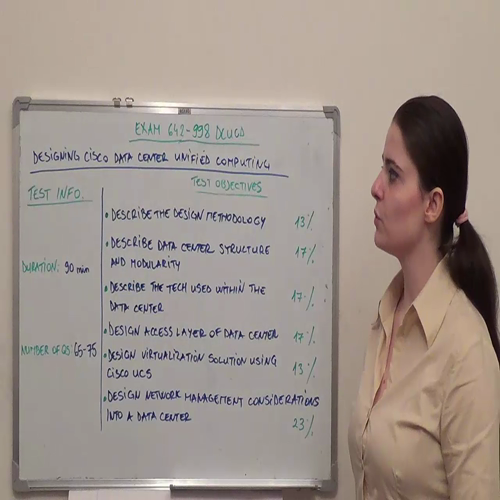 EXAM 642-998 DCUCD
DESIGNING CISCO DATA CENTER UNIFIED COMPUTING
TEST INFO
DURATION: 90 min
NUMBER OF QS: 65-75
TEST OBJECTIVES
• DESCRIBE THE DESIGN METHODOLOGY 13%
• DESCRIBE DATA CENTER STRUCTURE 17%
AND MODULARITY
• DESCRIBE THE TECH USED WITHIN THE 17%
DATA CENTER
• DESIGN ACCESS LAYER OF DATA CENTER 17%
• DESIGN VIRTUALIZATION SOLUTION USING 13%
CISCO UCS
• DESIGN NETWORK MANAGEMENT CONSIDERATIONS
INTO A DATA CENTER 23%